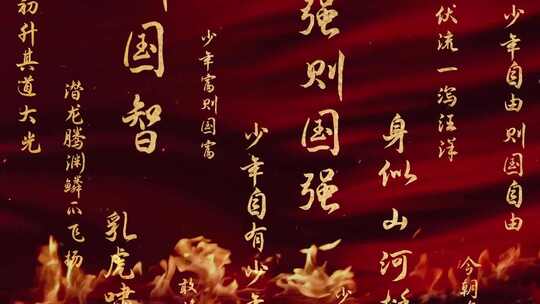 少年自由则国自由
今朝
伏流一泻汪洋
身似山河
少
强则国强
少年自有少年
少年富则国富
敢
国智
乳虎啸
潜龙腾渊鳞爪飞扬
初升其道大光